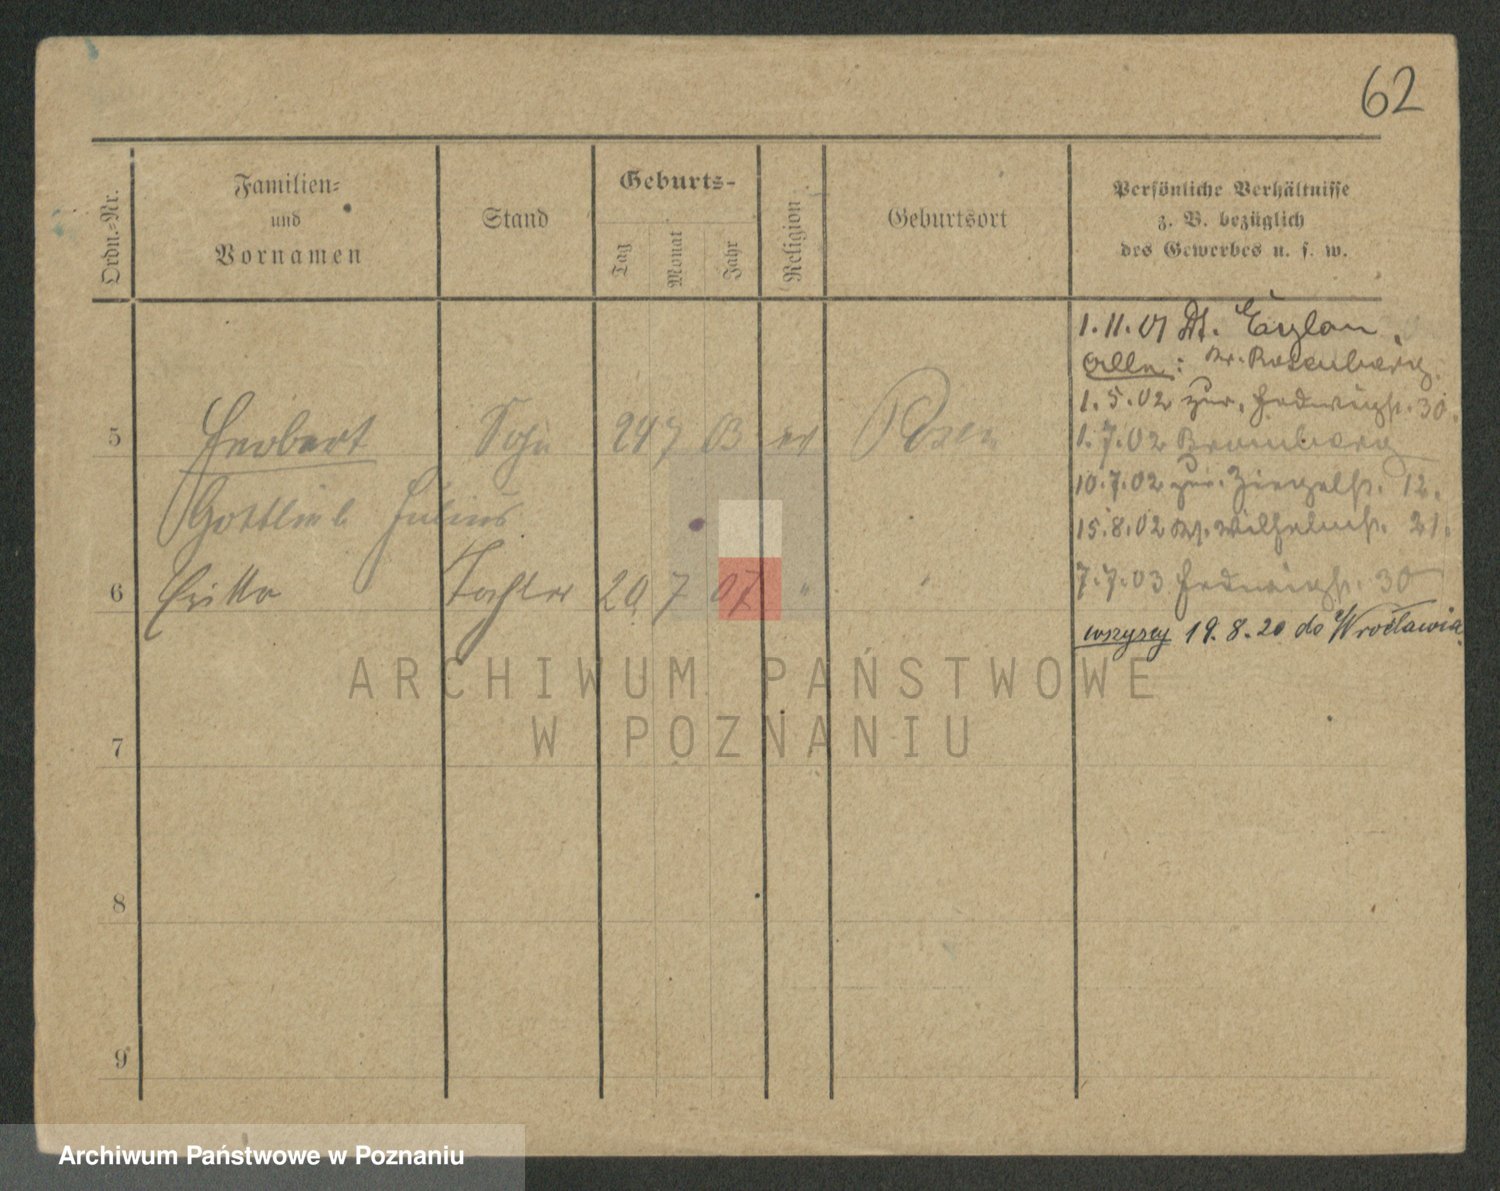 62
Ordn.-Nr.
Familien-
und
Vornamen
Stand
Geburts-
Tag
Monat
Jahr
Religion
Geburtsort
Persönliche Verhältnisse
z. B. bezüglich
des Gewerbes u. s. w.
1.11.01 Dt.
Alle: Kr. Rosenberg.
1.5.02 zur. Hedwigstr. 30.
5 Herbert Sohn 24 7 03 ev Posen
1.7.02 Bromberg
10.7.02 zur. Ziegelstr. 12.
Gottlieb Julius
15.8.02 Wilhelmstr. 21.
6 Tochter 20 7 07 " "
7.7.03 Hedwigstr. 30
wszyscy 19.8.20 do Wrocławia.
ARCHIWUM PAŃSTWOWE
W POZNANIU
7
8
9
Archiwum Państwowe w Poznaniu